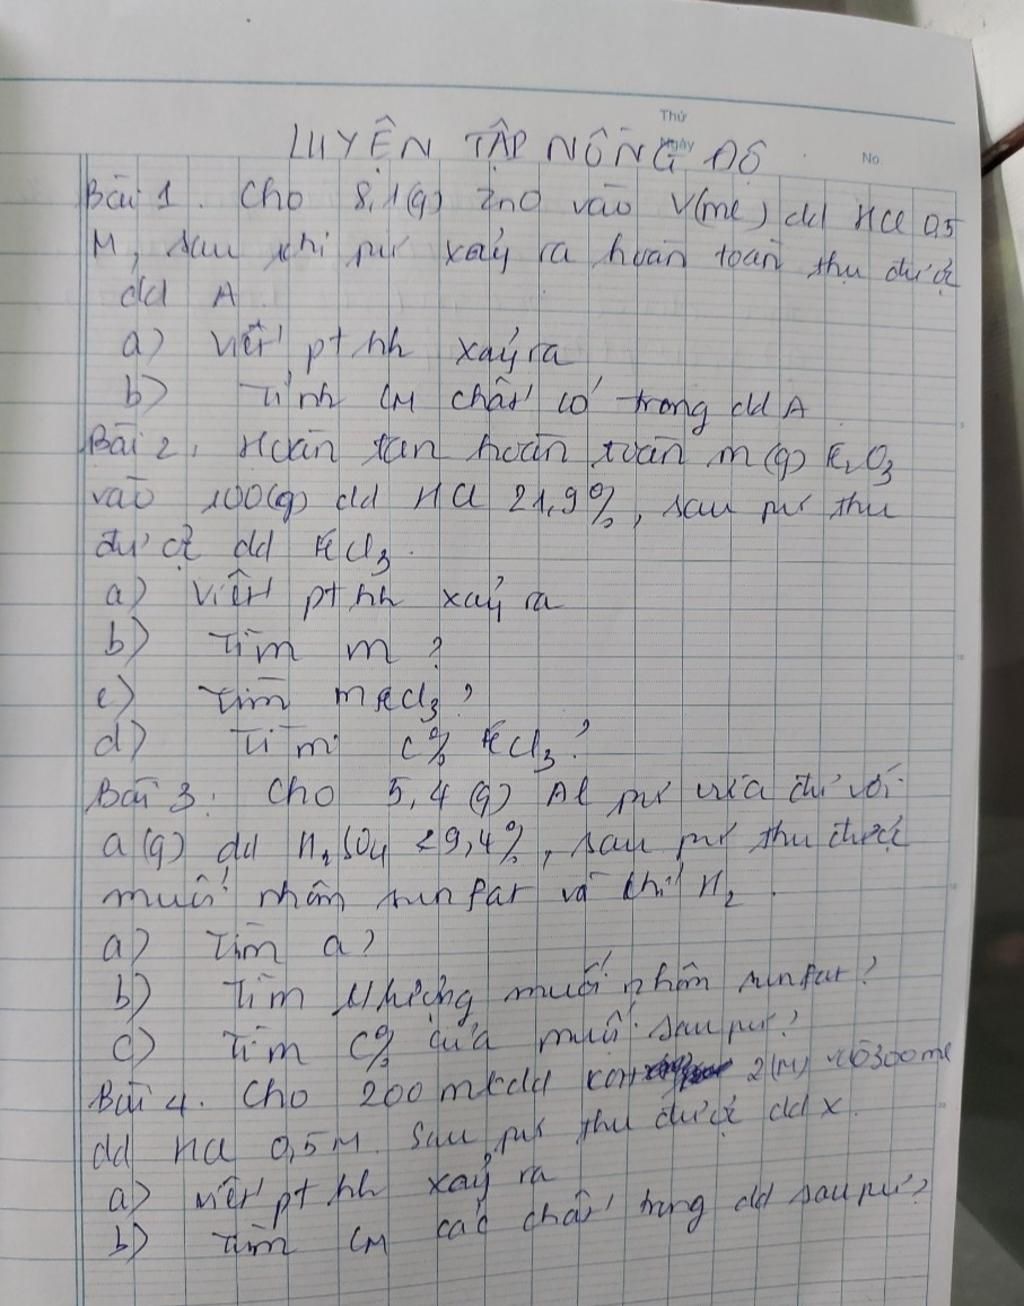 Thứ
Ngày
No.
LUYỆN TẬP NỒNG ĐỘ
Bài 1. Cho 8,1(g) ZnO vào V(ml) dd HCl 0,5
M, sau khi pứ xảy ra hoàn toàn thu được
dd A.
a) Viết pt hh xảy ra
b) Tính CM chất có trong dd A
Bài 2. Hoàn tan hoàn toàn m (g) Fe2O3
vào 100(g) dd HCl 21,9%, sau pứ thu
được dd FeCl3.
a) Viết pt hh xảy ra
b) Tìm m?
c) Tìm mFeCl3?
d) Tìm C% FeCl3?
Bài 3. Cho 5,4 (g) Al pứ vừa đủ với
a (g) dd H2SO4 29,4%, sau pứ thu được
muối nhôm sunfat và khí H2.
a) Tìm a?
b) Tìm khối lượng muối nhôm sunfat?
c) Tìm C% của muối sau pứ?
Bài 4. Cho 200 ml dd KOH 2(M) vào 300 ml
dd HCl 0,5M. Sau pứ thu được dd X.
a) Viết pt hh xảy ra
b) Tìm CM các chất trong dd sau pứ?